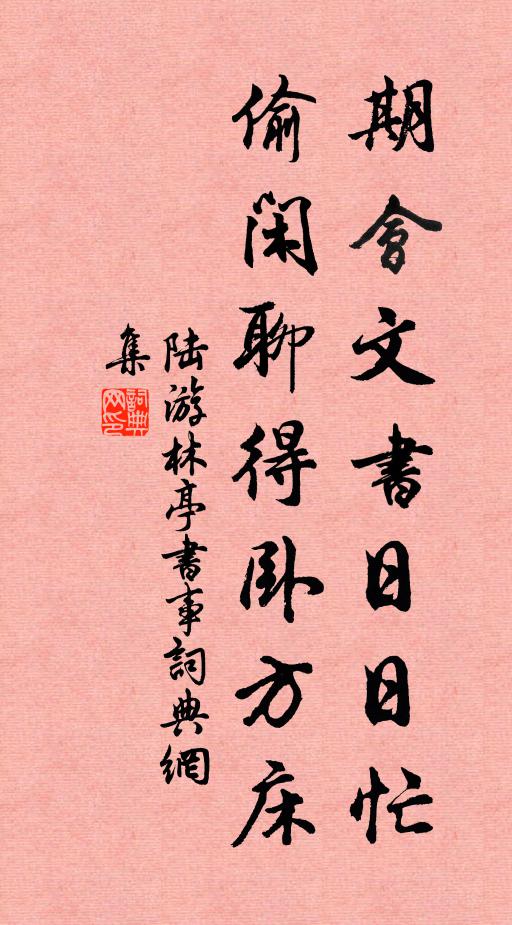 期會文書日日忙
偷閑聊得卧方床
陆游林亭書事詞典網
集
詞典网印